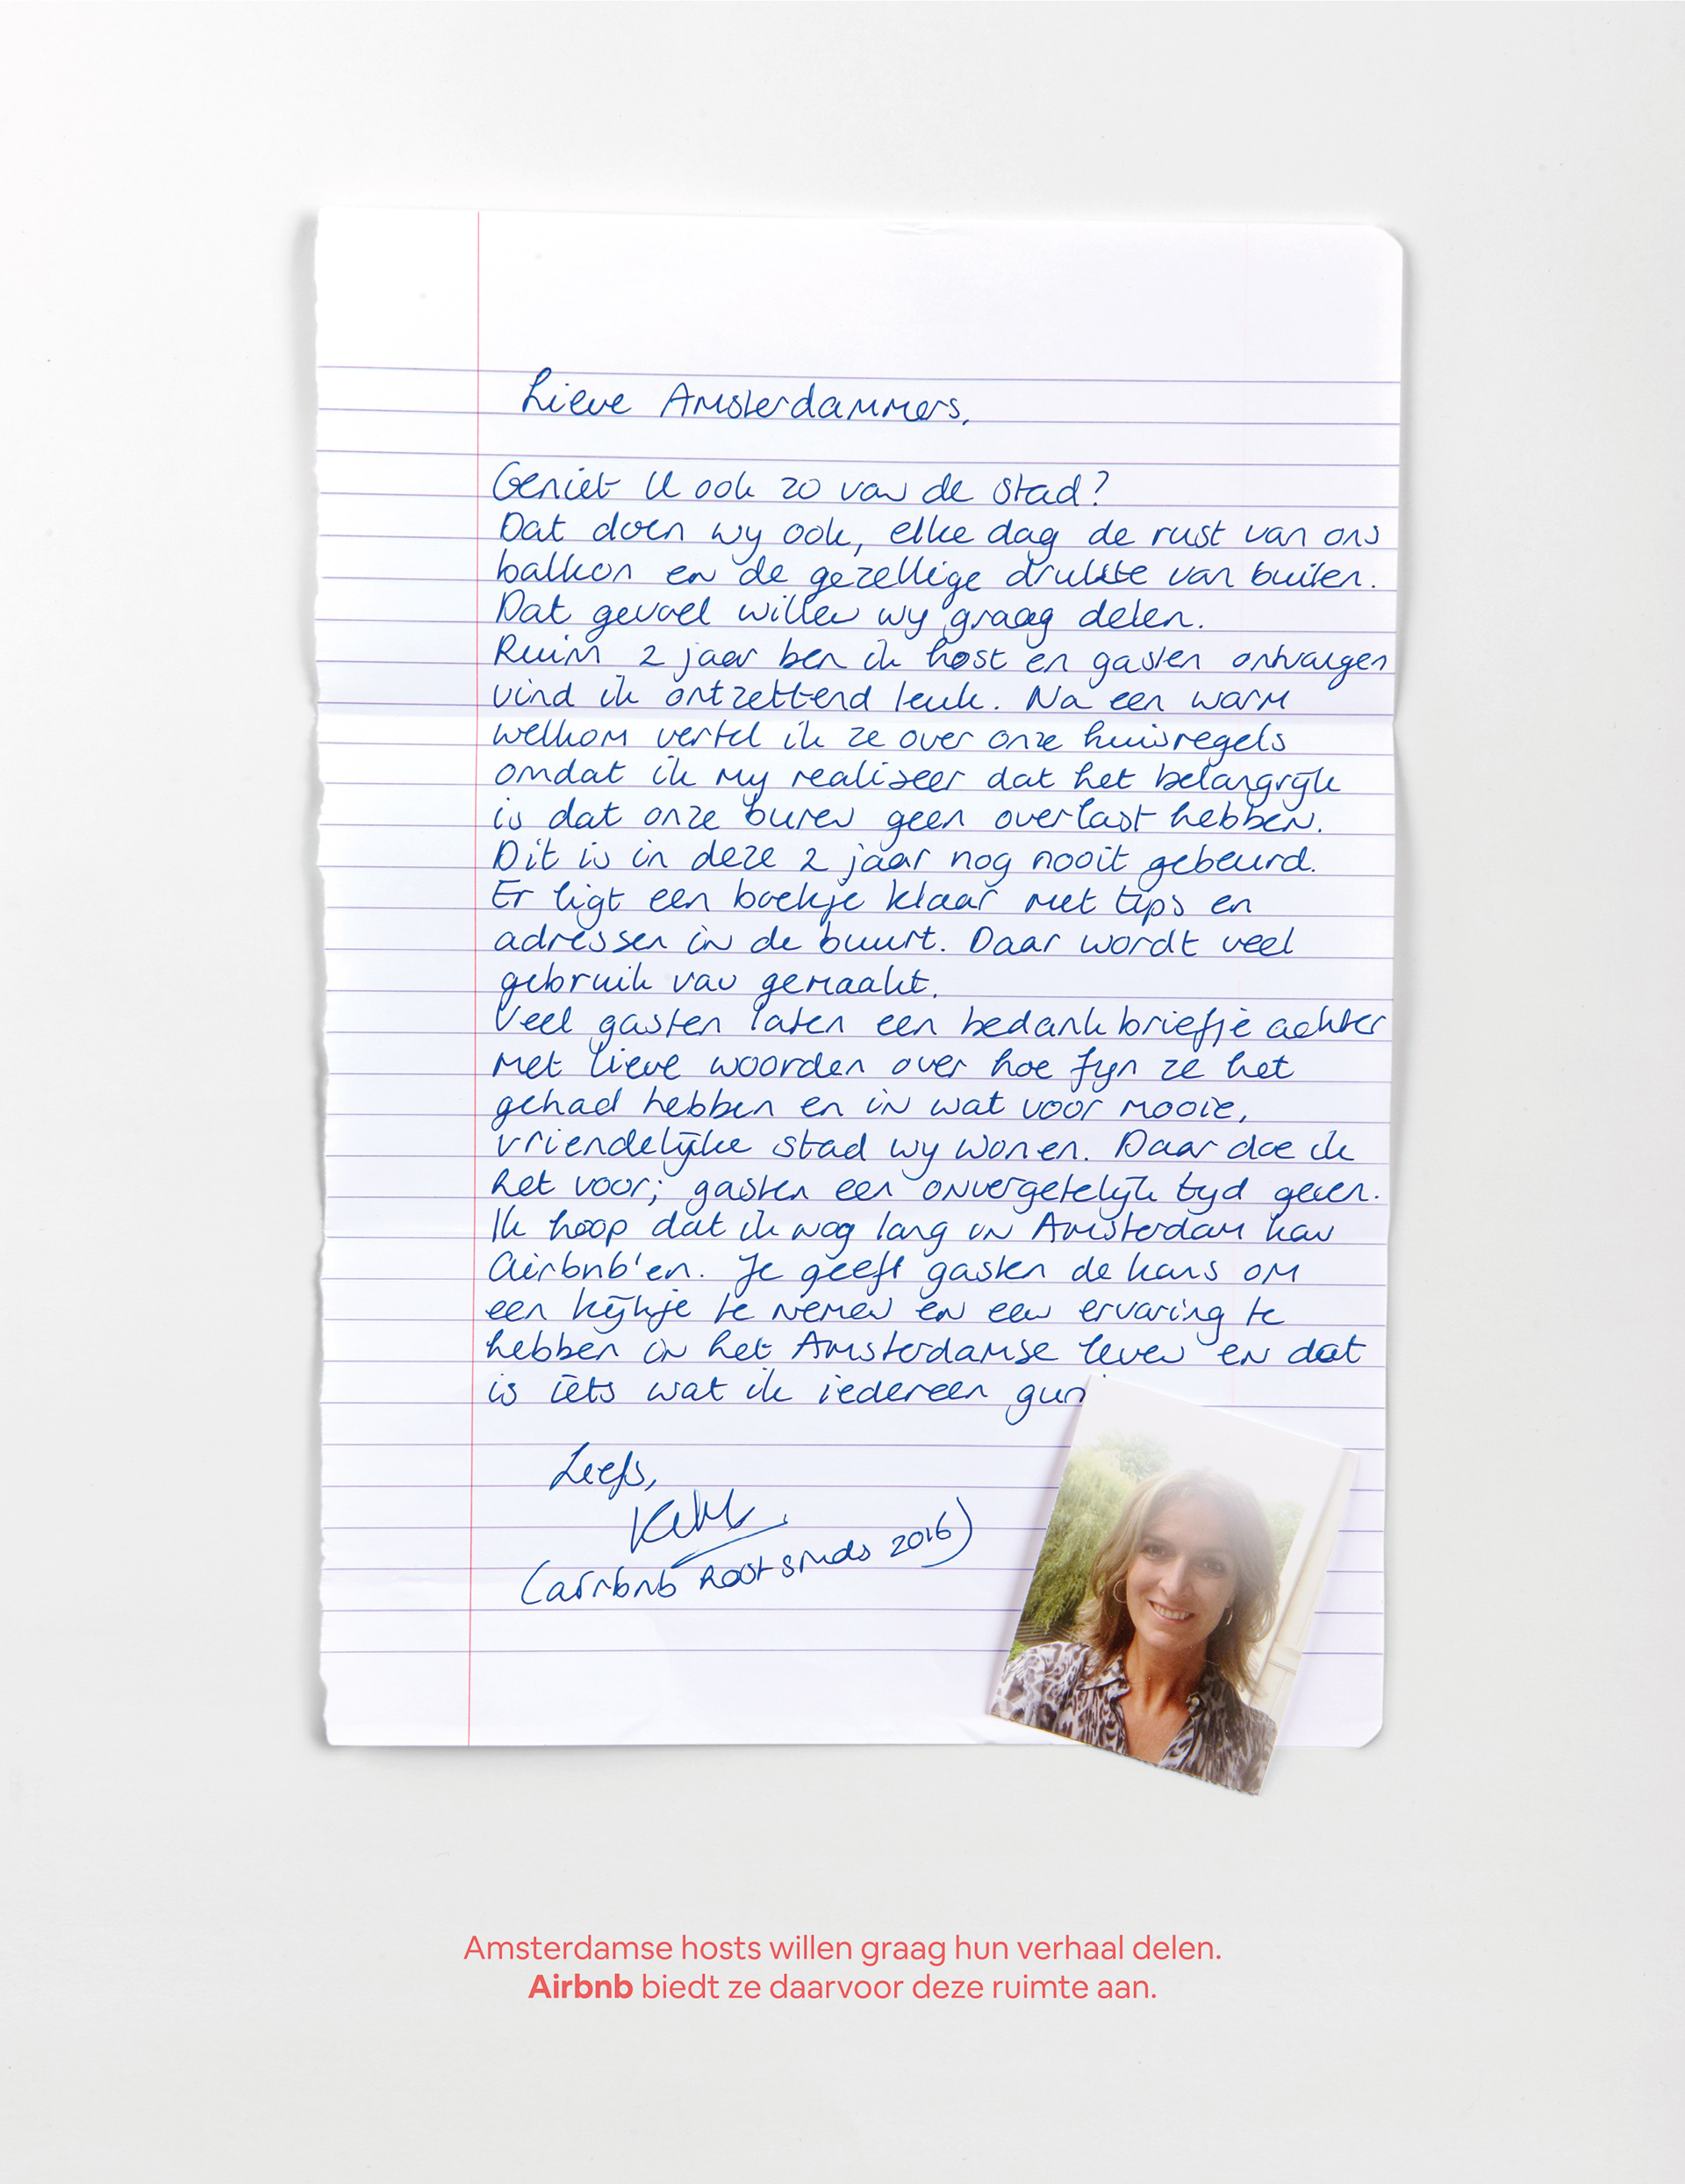 Lieve Amsterdammers,
Geniet U ook zo van de stad?
Dat doen wij ook, elke dag de rust van ons
balkon en de gezellige drukte van buiten.
Dat gevoel willen wij graag delen.
Ruim 2 jaar ben ik host en gasten ontvangen
vind ik ontzettend leuk. Na een warm
welkom vertel ik ze over onze huisregels
omdat ik mij realiseer dat het belangrijk
is dat onze buren geen overlast hebben.
Dit is in deze 2 jaar nog nooit gebeurd.
Er ligt een boekje klaar met tips en
adressen in de buurt. Daar wordt veel
gebruik van gemaakt.
Veel gasten laten een bedankbriefje achter
met lieve woorden over hoe fijn ze het
gehad hebben en in wat voor mooie,
vriendelijke stad wij wonen. Daar doe ik
het voor; gasten een onvergetelijk tijd geven.
Ik hoop dat ik nog lang in Amsterdam kan
Airbnb'en. Je geeft gasten de kans om
een kijkje te nemen en een ervaring te
hebben in het Amsterdamse leven en dat
is iets wat ik iedereen gun
Liefs,
(airbnb host sinds 2016)
Amsterdamse hosts willen graag hun verhaal delen.
Airbnb biedt ze daarvoor deze ruimte aan.